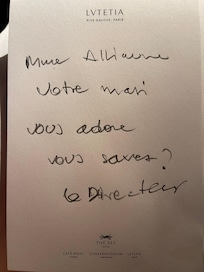 LVTETIA
RIVE GAUCHE, PARIS
Mme Allianne
Votre mari
vous adore
vous savez?
Le Directeur
THE SET